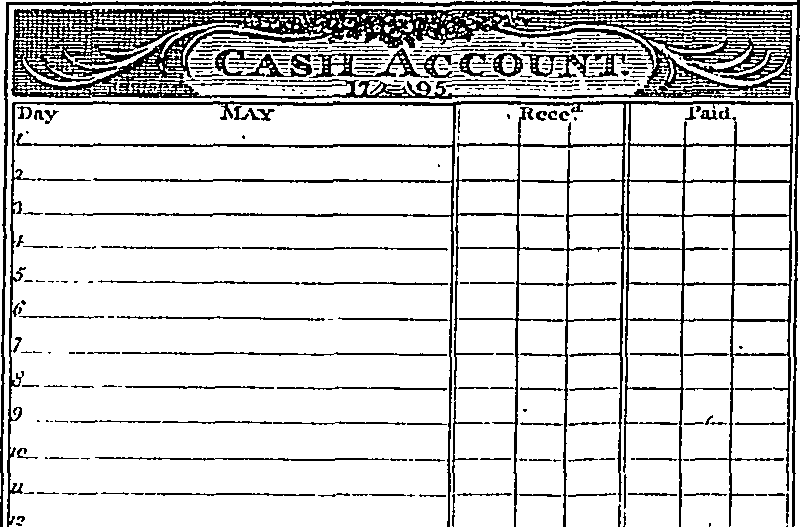 CASH ACCOUNT.
1795.
Day MAY Reced. Paid.
1
2
3
4
5
6
7
8
9
10
11
12